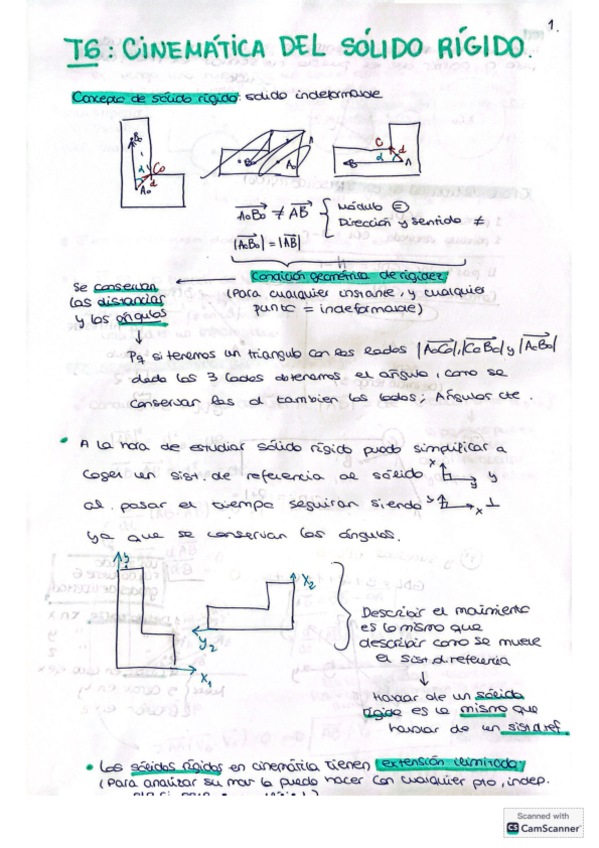 1.
T6: CINEMÁTICA DEL SÓLIDO RÍGIDO.
Concepto de sólido rígido: sólido indeformable
B₀ C₀ α d A₀
B₀ A₀ A
C d α B A
A₀B₀ ≠ AB { Módulo =
Dirección y sentido ≠
|A₀B₀| = |AB|
Condición geométrica de rigidez
(Para cualquier instante, y cualquier
punto = indeformable)
Se conservan
las distancias
y los ángulos
Pq si tenemos un triangulo con los lados |A₀C₀|, |C₀B₀| y |A₀B₀|
dado los 3 lados obtenemos el ángulo, como se
conservan las d tambien los lados; Ángulos cte.
• A la hora de estudiar sólido rígido puedo simplificar a
coger un sist. de referencia al sólido x y y
al pasar el tiempo seguiran siendo y x ⊥
ya que se conservan los ángulos.
y x₁
x₂ y₂
Describir el movimiento
es lo mismo que
describir como se mueve
el sist.d.referencia
Hablar de un sólido
rígido es lo mismo que
hablar de un sist.d.ref.
• Los sólidos rígidos en cinemática tienen extensión ilimitada
(Para analizar su mov lo puedo hacer con cualquier pto, indep.
Scanned with
CS CamScanner